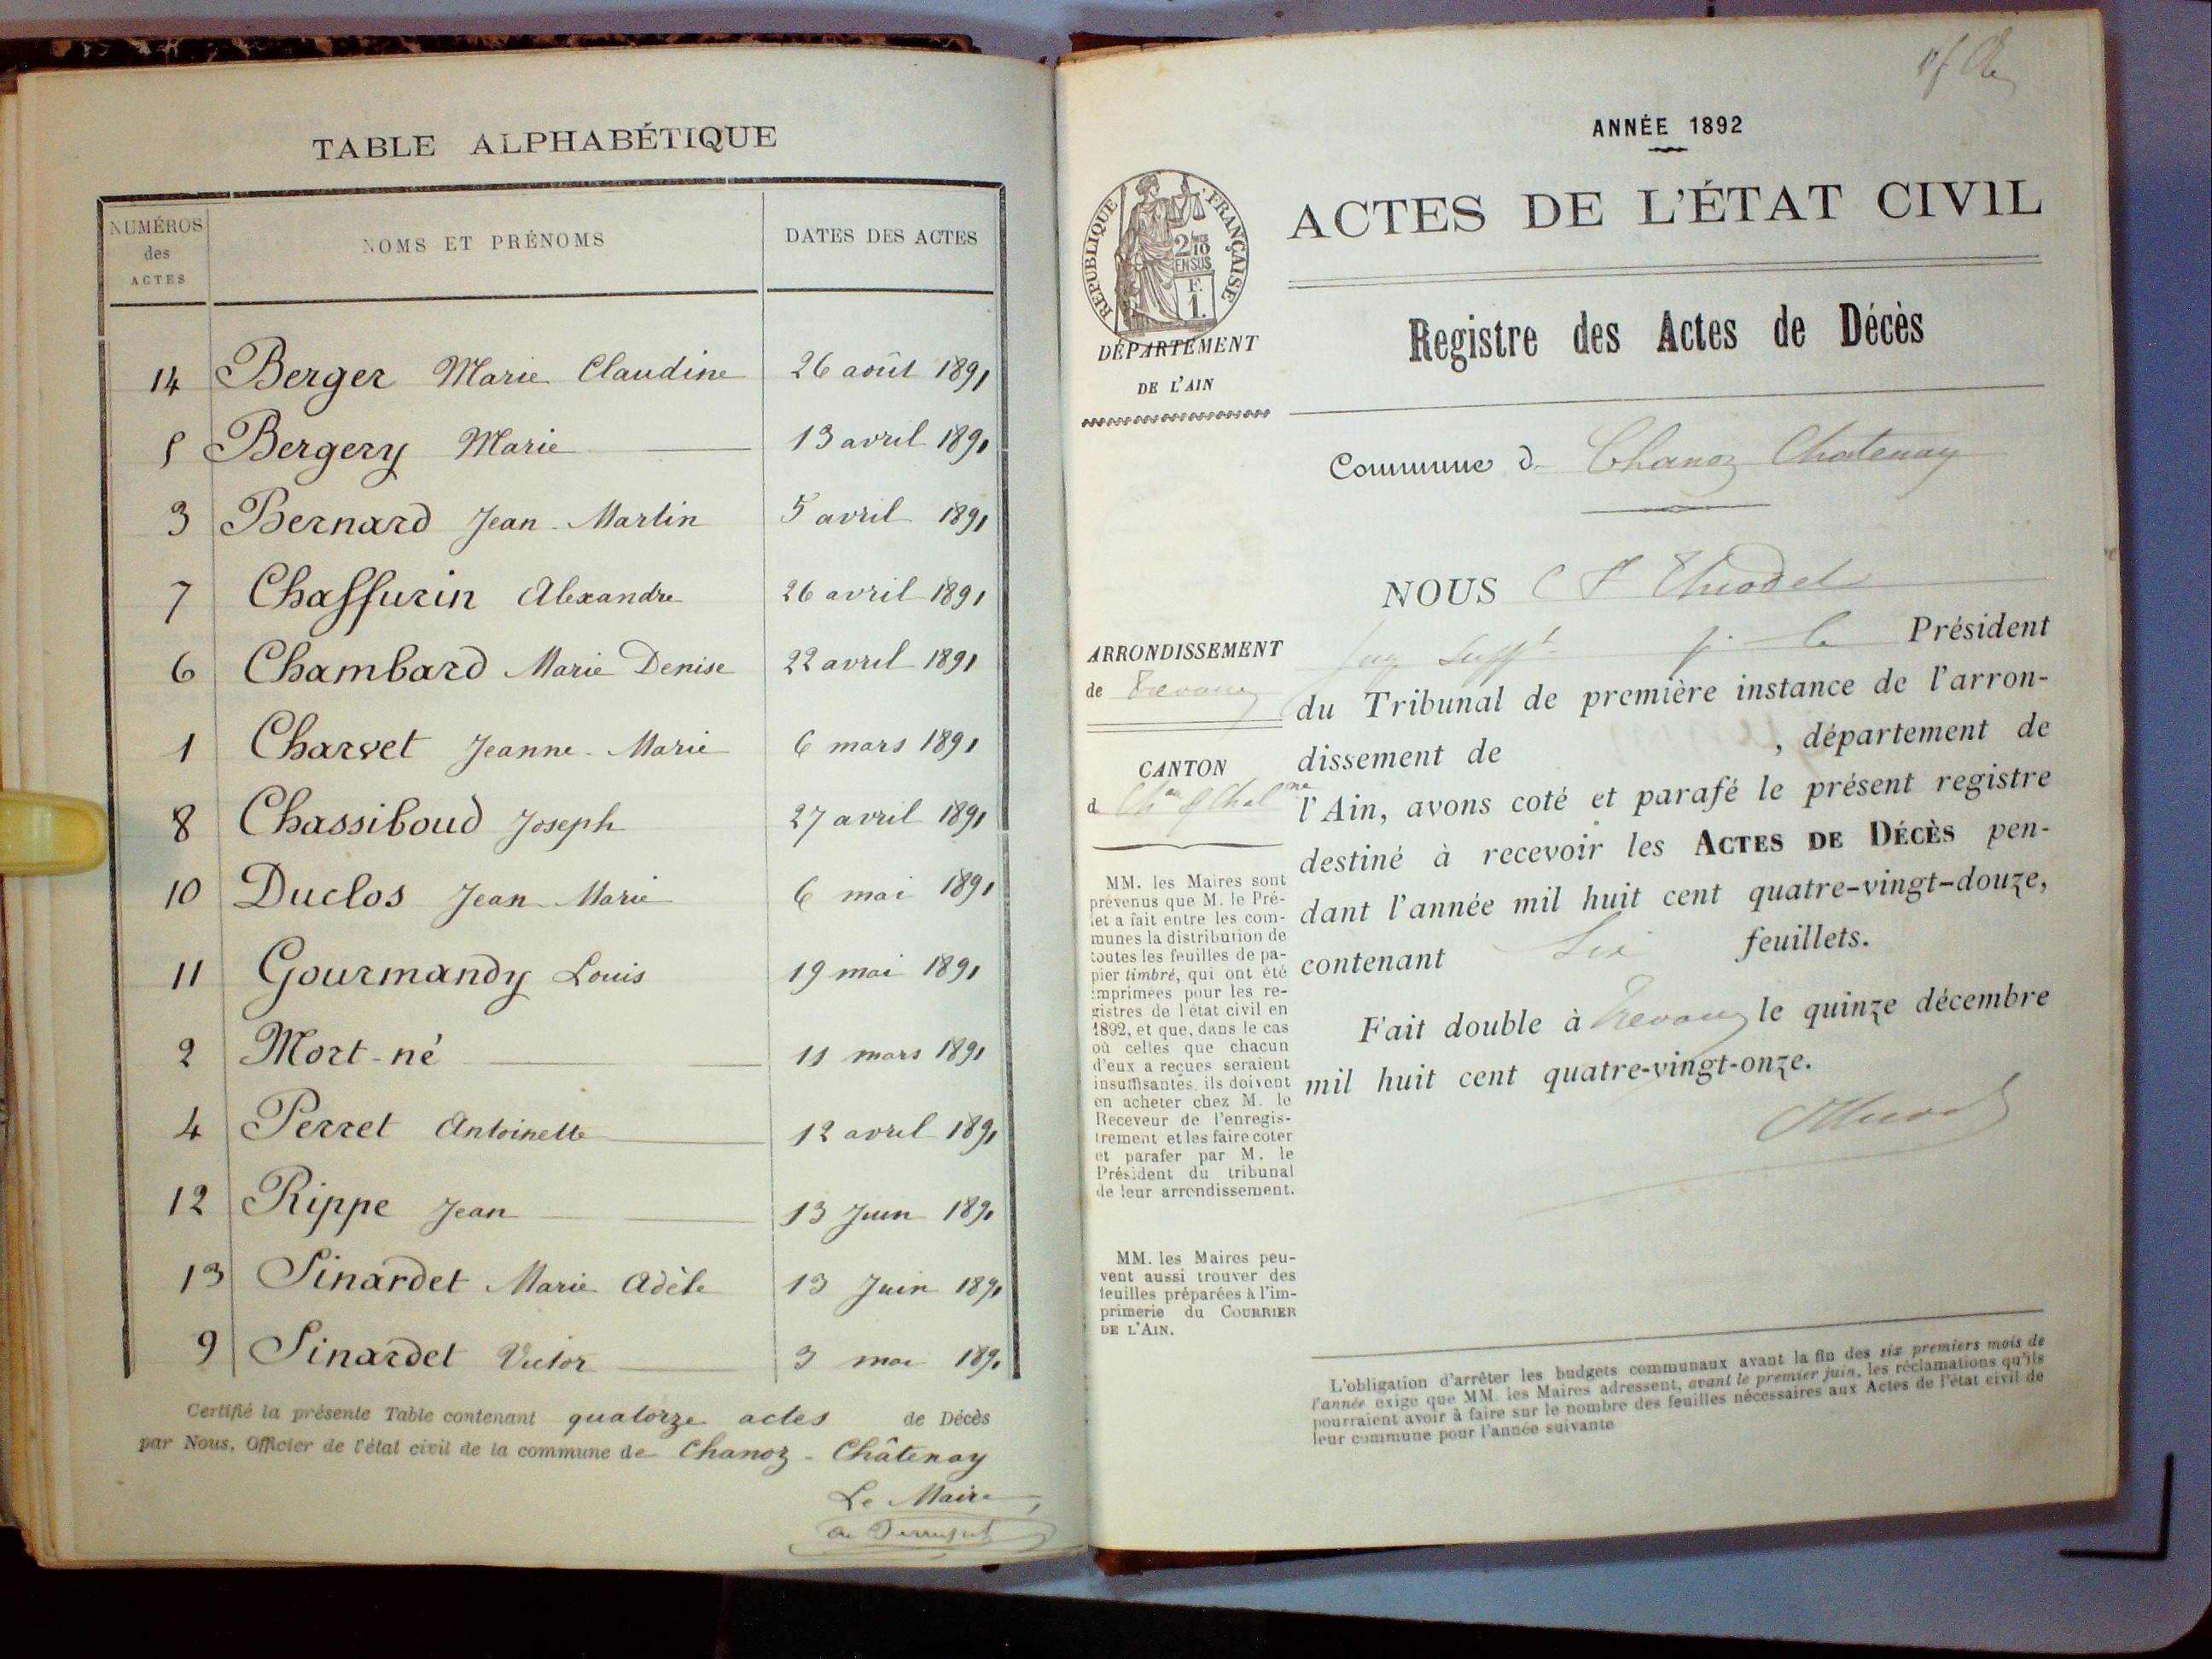 TABLE ALPHABÉTIQUE
NUMÉROS des ACTES NOMS ET PRÉNOMS DATES DES ACTES
14 Berger Marie Claudine 26 août 1891
5 Bergery Marie 13 avril 1891
3 Bernard Jean-Martin 5 avril 1891
7 Chaffurin Alexandre 26 avril 1891
6 Chambard Marie Denise 22 avril 1891
1 Charvet Jeanne-Marie 6 mars 1891
8 Chassiboud Joseph 27 avril 1891
10 Duclos Jean-Marie 6 mai 1891
11 Gourmandy Louis 19 mai 1891
2 Mort-né 11 mars 1891
4 Perret Antoinette 12 avril 1891
12 Rippe Jean 13 Juin 1891
13 Sinardet Marie Adèle 13 Juin 1891
9 Sinardet Victor 3 mai 1891
Certifié la présente Table contenant quatorze actes de Décès
par Nous, Officier de l'état civil de la commune de Chanoz-Châtenay
Le Maire
ANNÉE 1892
ACTES DE L'ÉTAT CIVIL
REPUBLIQUE FRANÇAISE
2/10
EN SUS
F.
1.
DÉPARTEMENT
DE L'AIN
Registre des Actes de Décès
Commune d Chanoz Chatenay
ARRONDISSEMENT
de Trevoux
CANTON
d
MM. les Maires sont
prévenus que M. le Pré-
fet a fait entre les com-
munes la distribution de
toutes les feuilles de pa-
pier timbré, qui ont été
imprimées pour les re-
gistres de l'état civil en
1892, et que, dans le cas
où celles que chacun
d'eux a reçues seraient
insuffisantes, ils doivent
en acheter chez M. le
Receveur de l'enregis-
trement et les faire coter
et parafer par M. le
Président du tribunal
de leur arrondissement.
MM. les Maires peu-
vent aussi trouver des
feuilles préparées à l'im-
primerie du COURRIER
DE L'AIN.
NOUS
Président
du Tribunal de première instance de l'arron-
dissement de , département de
l'Ain, avons coté et parafé le présent registre
destiné à recevoir les ACTES DE DÉCÈS pen-
dant l'année mil huit cent quatre-vingt-douze,
contenant Six feuillets.
Fait double à Trevoux le quinze décembre
mil huit cent quatre-vingt-onze.
L'obligation d'arrêter les budgets communaux avant la fin des six premiers mois de
l'année exige que MM. les Maires adressent, avant le premier juin, les réclamations qu'ils
pourraient avoir à faire sur le nombre des feuilles nécessaires aux Actes de l'état civil de
leur commune pour l'année suivante